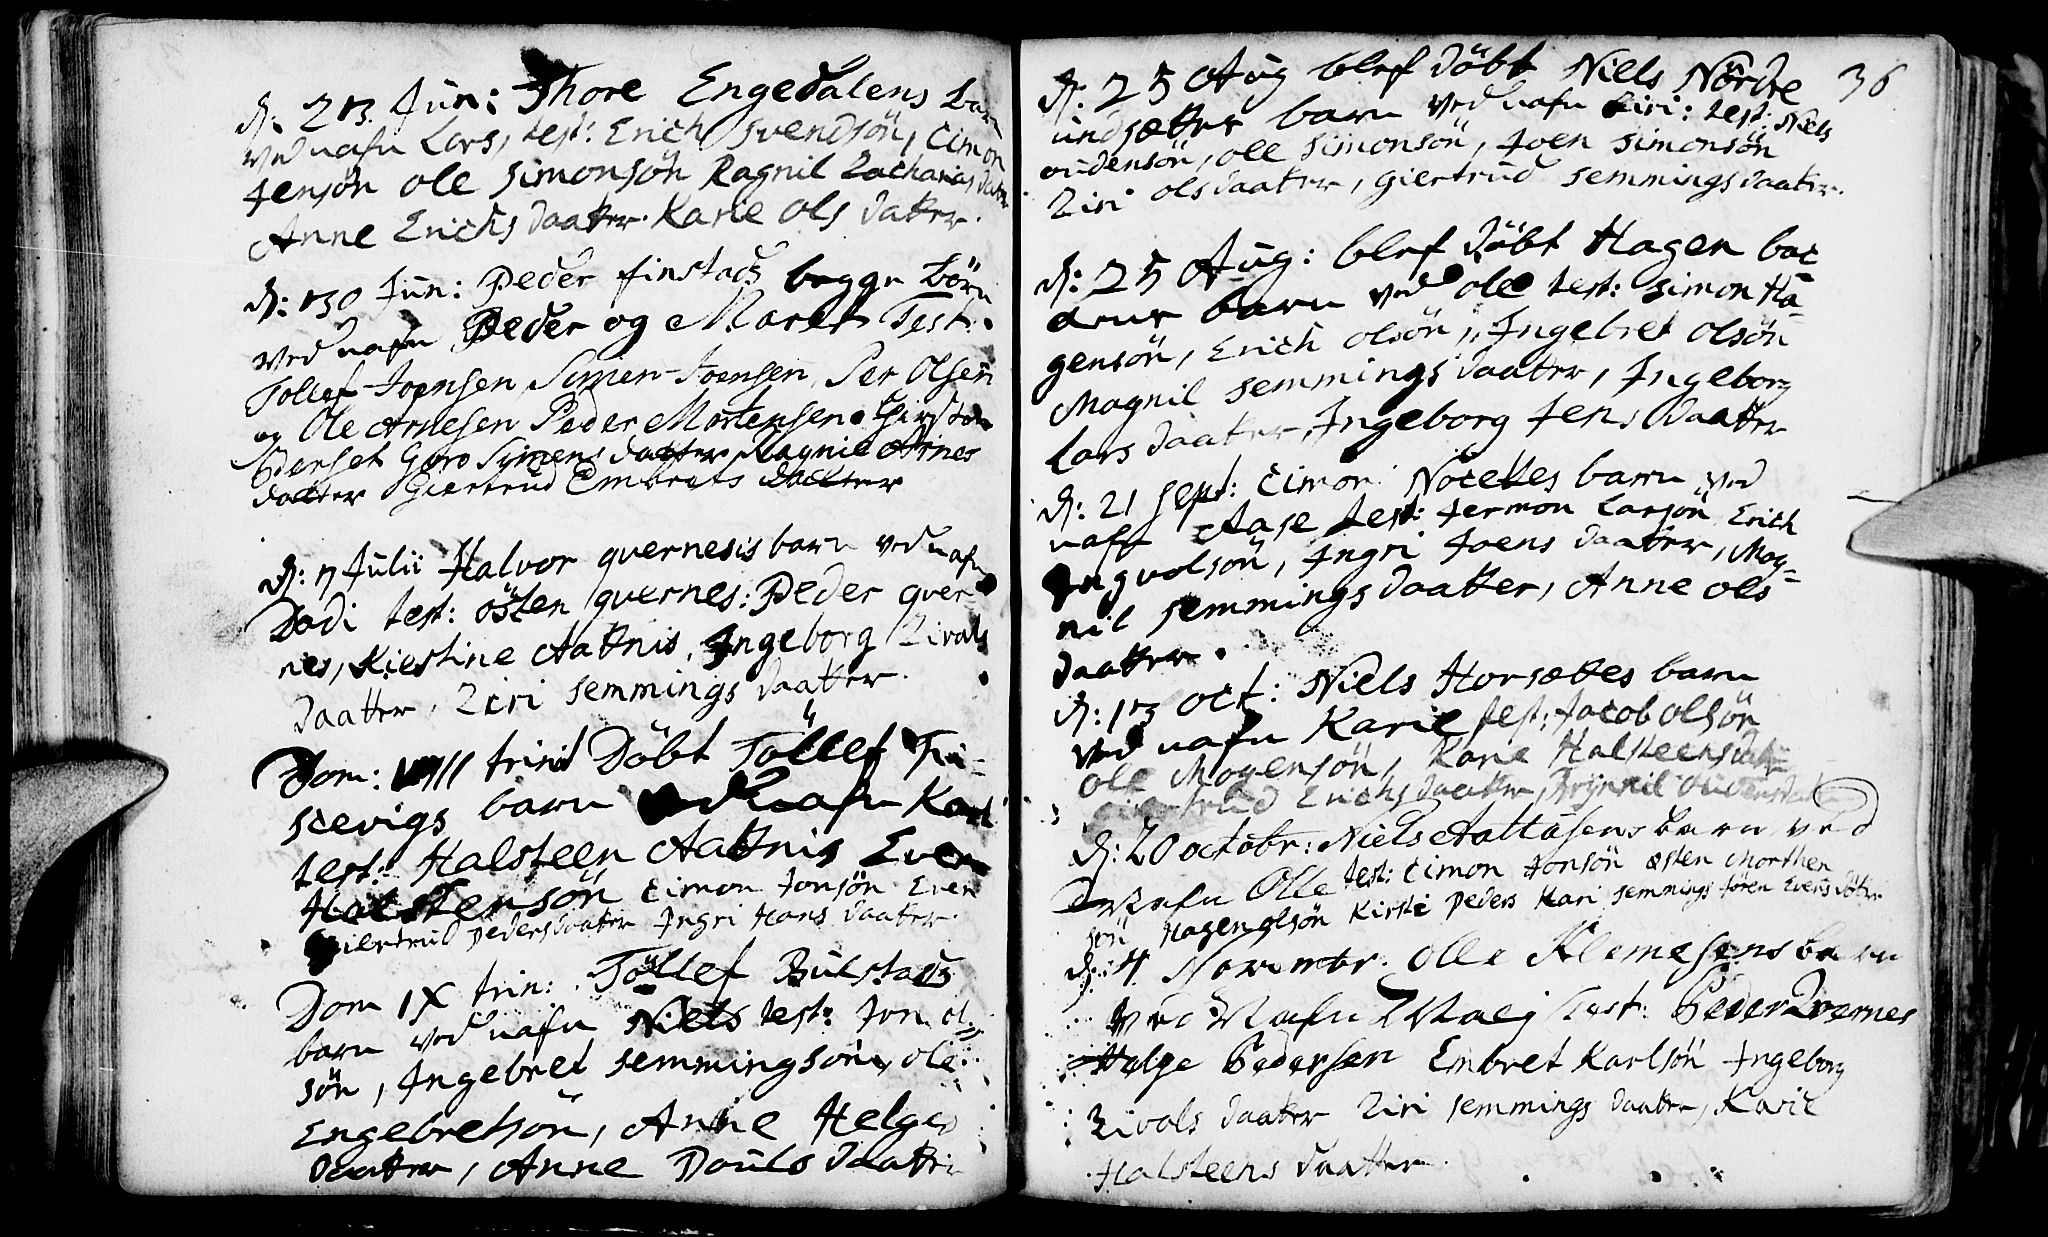 d: 23 Jun: Thore Engedalens barn
ved nafn Lars, test: Erich svendsön, Cimon
Jensön ole simonsön Ragnil Zacharias dater
Anne Erichs daatter. Karie ols datter.
d: 30 Jun: Peder finstads begge börn
Ved nafn Peder og Maret Test:
Tollef Joensen, Simen Joensen, Per Olsen
og Ole Arnesen Peder Mortensen.
Goro Symens datter Magnil Arnes
datter Giertrud Embrets datter
d: 7 Julii Halvor qvernesis barn ved nafn
Dodi test: östen qvernes: Peder qver
nes, Kiestine Aatknis, Ingeborg Zivals
daatter, Ziri semmings daatter.
Dom: VIII trinit Döbt Töllef
scevigs barn ved nafn Kari
test: Halsteen Aatknis Even
Halstensön Cimon Jonsön Even
Giertrud pedersdaatter Ingri Hans daatter.
Dom IX trin: Töllef Bulstads
barn ved nafn Niels test: Jon ol
sön, Ingebret semmingsön, ole
Engebretsön, Anne Helges
daatter, Anne Pouls daatter
36
d: 25 Aug blef döbt Niels Nordre
undsætter barn ved nafn Ziri: test: Niels
oudensön, ole simonsön, Joen simonsön
Ziri olsdaatter, giertrud semmings daatter.
d: 25 Aug: blef döbt Hagen bac
barn ved ole test: simon Ha=
gensön, Erich olsön, Ingebret olsön
Magnil semmings daatter, Ingeborg
Lars daatter, Ingeborg Jens daatter
d: 21 sept: Cimon barn ved
nafn Aase test: Jermon Larsön Erich
Ingvolsön, Ingri Joens daatter, Mag=
nil semmings daatter, Anne ols
daatter.
d: 13 oct: Niels Horsættes barn
ved nafn Karie test: Jacob olsön
ole Mogensön, Karie Halsteensdat=
Erichs daatter,
d: 20 octobr: Niels barn ved
Nafn Olle test: Cimon Jonsön östen Morthen
sön Hagen olsön Kirsti Peders Kari semmings Jören Evens döter
d: 4 Novembr: Olle Klemesens barn
ved Nafn Test: Peder Qvernes
Helge Pedersen Embret Karlsön Ingeborg
Zivals daatter Ziri semmings daatter, Karie
Halsteens daatter.